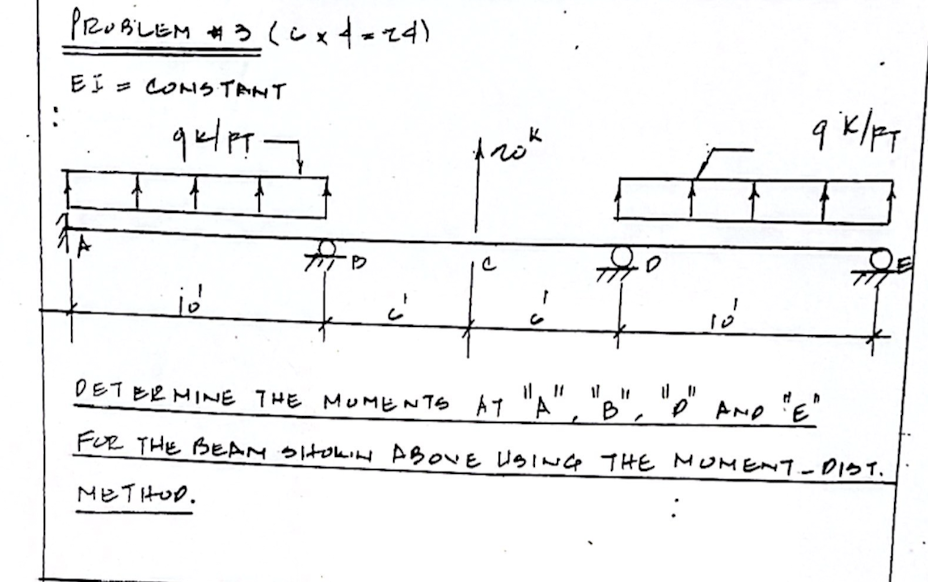 PROBLEM #3 (6 x 4 = 24)
EI = CONSTANT
9 K/FT
20 K
9 K/FT
A
B
C
D
E
10'
6'
6'
10'
DETERMINE THE MOMENTS AT "A", "B", "D" AND "E"
FOR THE BEAM SHOWN ABOVE USING THE MOMENT-DIST.
METHOD.